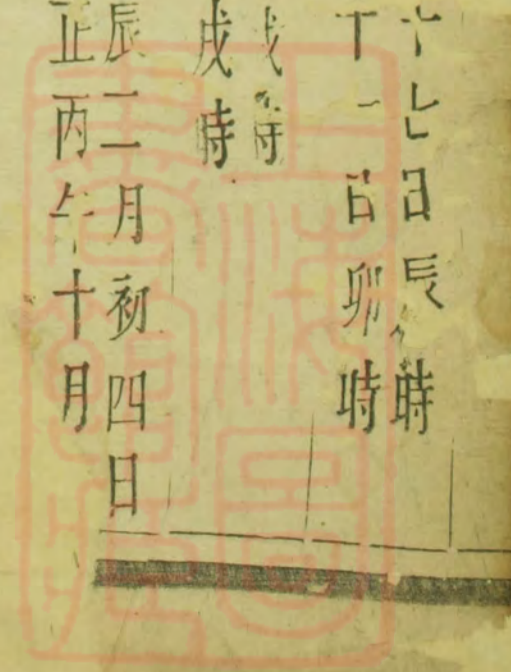 十七日辰時
十一日卯時
戌時
戌時
辰二月初四日
正丙午十月
上海圖
書館藏